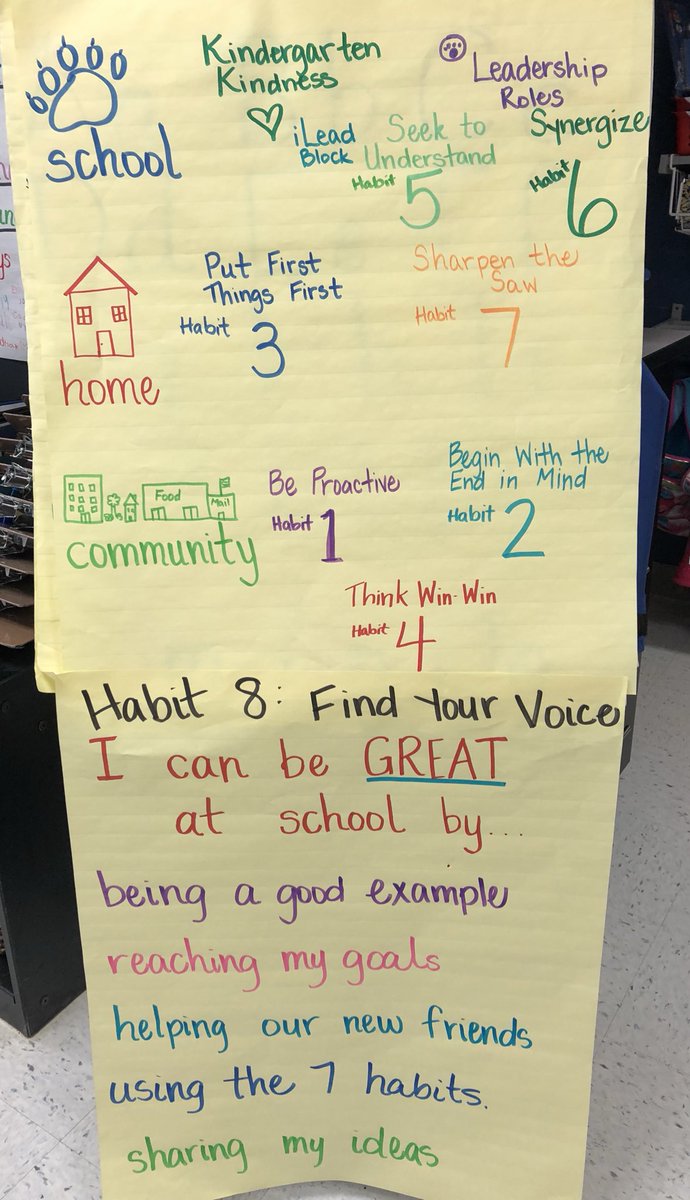 Kindergarten
Kindness
Leadership
Roles
school
iLead
Block
Seek to
Understand
Habit 5
Synergize
Habit 6
Put First
Things First
Habit 3
Sharpen the
Saw
Habit 7
home
Food
Mail
community
Be Proactive
Habit 1
Begin With the
End in Mind
Habit 2
Think Win-Win
Habit 4
Habit 8: Find Your Voice
I can be GREAT
at school by...
being a good example
reaching my goals
helping our new friends
using the 7 habits.
sharing my ideas